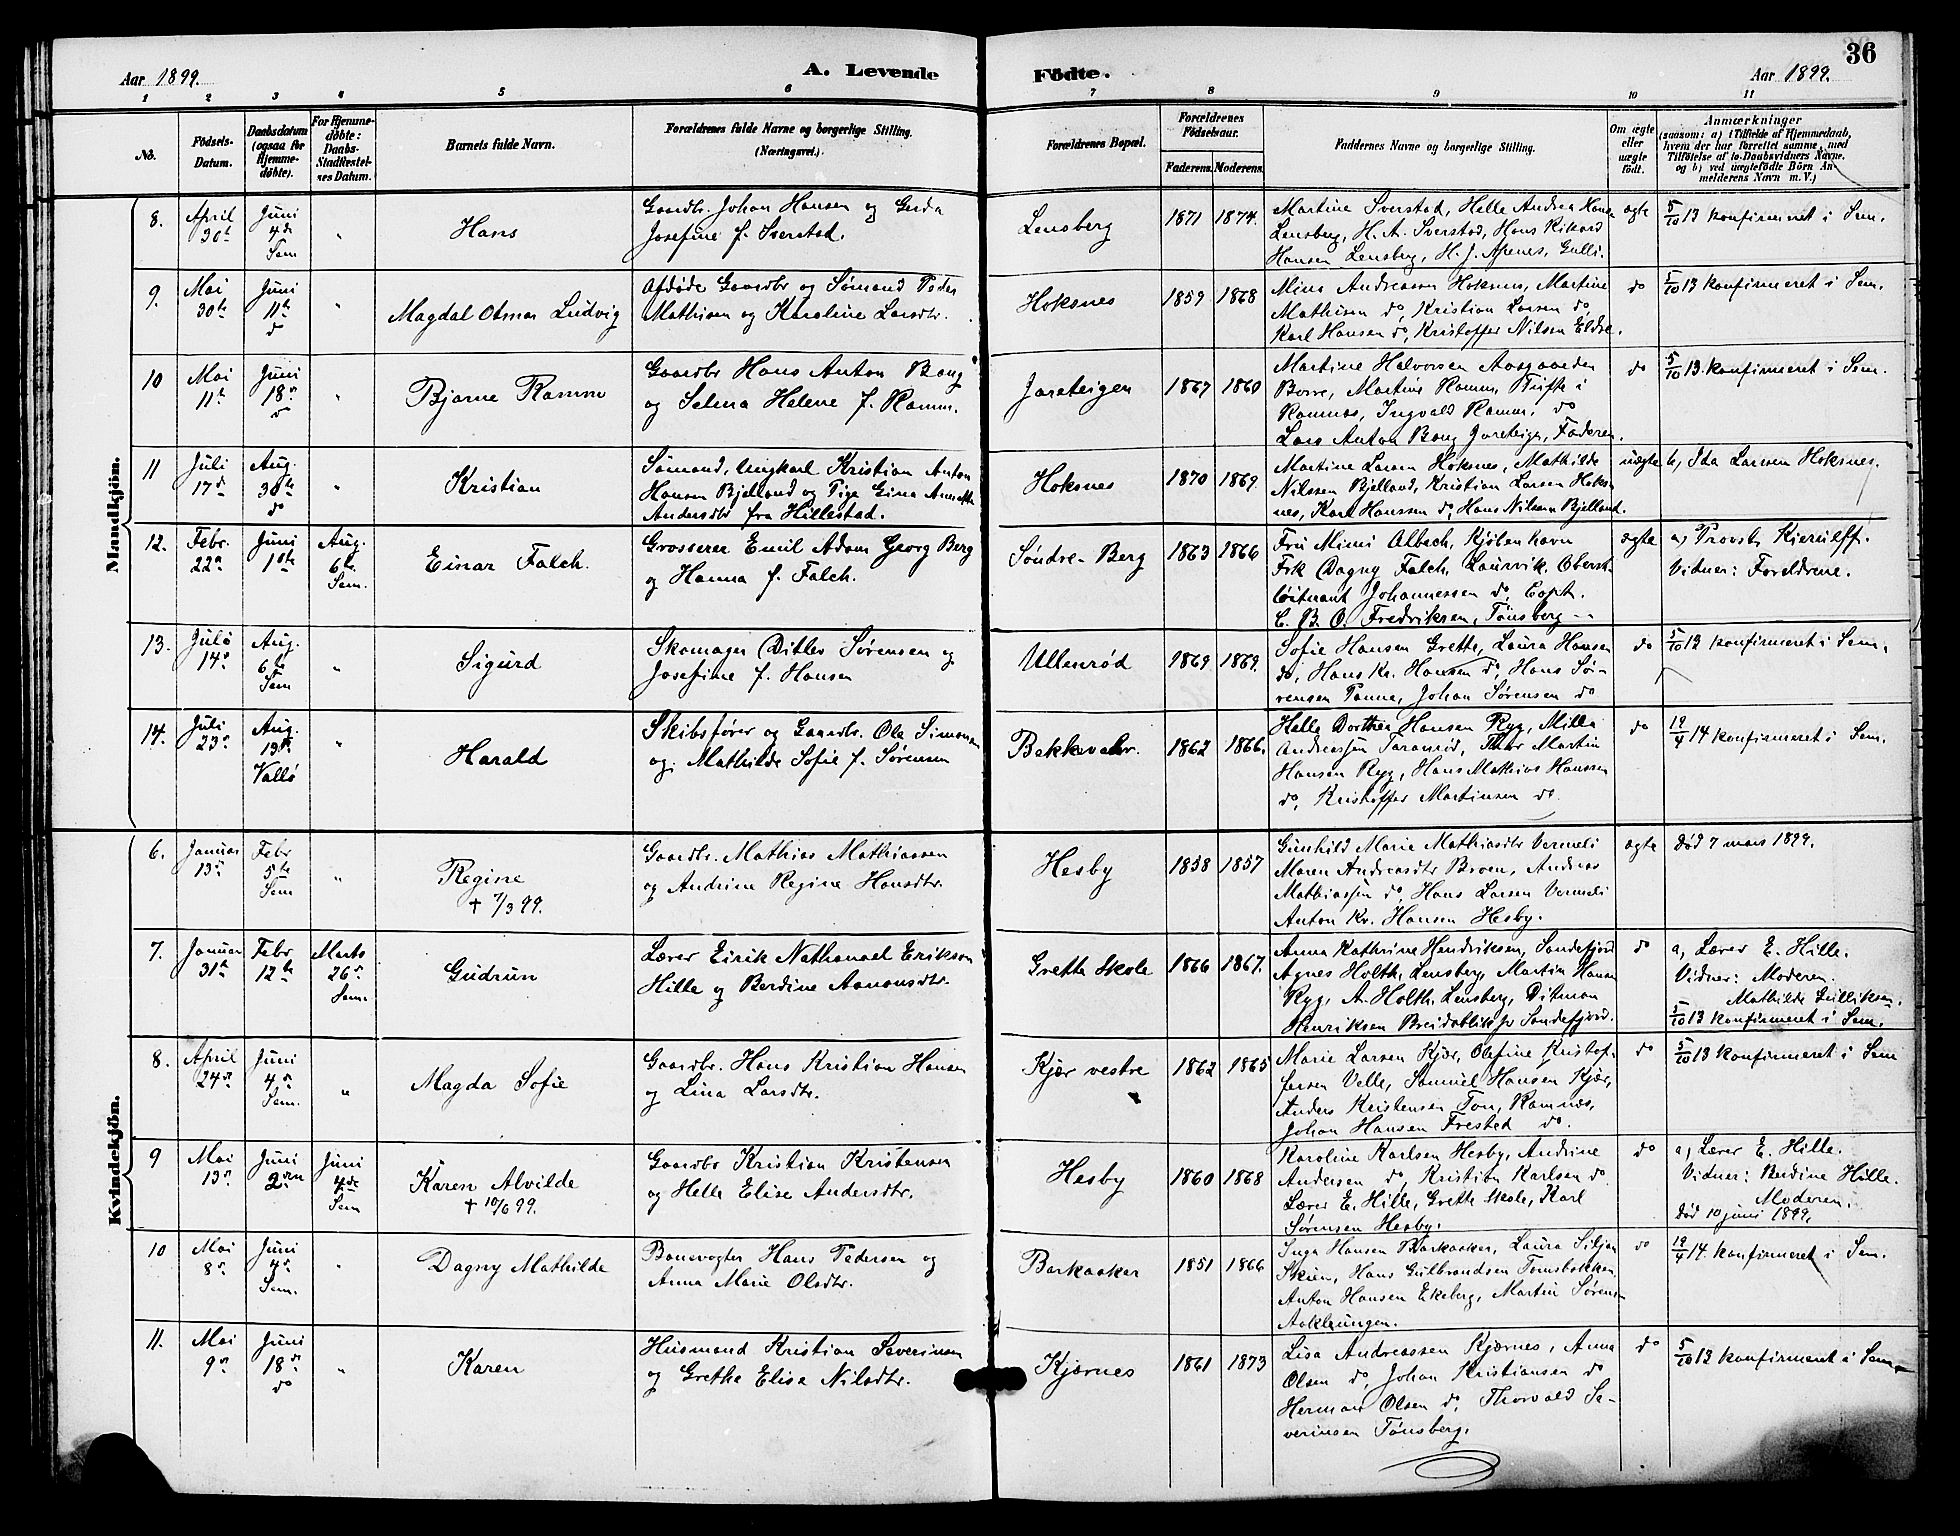 36
Aar 1899.
A. Levende
Fødte.
Aar 1899.
1 2 3 4 5 6 7 8 9 10 11
No.
Fødsels-
Datum.
Daabsdatum
(ogsaa for
Hjemme-
døbte).
For Hjemme-
døbte:
Daabs-
Stadfæstel-
ses Datum.
Barnets fulde Navn.
Forældrenes fulde Navne og borgerlige Stilling.
(Næringsvei.)
Forældrenes Bopæl.
Forældrenes
Fødselsaar.
Faderens. Moderens.
Faddernes Navne og borgerlige Stilling.
Om ægte
eller
uægte
født.
Anmærkninger
(saasom: a) i Tilfælde af Hjemmedaab,
hvem der har forrettet samme, med
Tilføielse af to Daabsvidners Navne.
og b) ved uægtefødte Børn An-
melderens Navn m. V.)
Mandkjøn.
8.
April
30te
Juni
4de
Sem
"
Hans
Gaardbr. Johan Hansen og Gerda
Josefine f. Sverstad.
Lensberg
1871 1874.
Martine Sverstad, Helle Andrea Hansen
Lensberg, H. A. Sverstad, Hans Rikard
Hansen Lensberg, H. J. Apenes, Gulli.
ægte
5/10 13 konfirmeret i Sem.
9.
Mai
30te
Juni
11te
do
"
Magdal Otmar Ludvig
Afdøde Gaardbr og Sømand Peder
Mathisen og Karoline Larsdtr.
Hoksnes
1859 1868
Mina Andreassen Hoksnes, Martine
Mathisen do, Kristian Larsen do,
Karl Hansen do, Kristoffer Nilsen Eldre.
do
5/10 13 konfirmeret i Sem.
10
Mai
11te
Juni
18de
do
"
Bjarne Ramm
Gaardbr Hans Anton Bang
og Selma Helene f. Ramm.
Jareteigen
1867 1860
Martine Halvorsen Aasgaarden
Borre, Martins Ramm, Tufte i
Ramnæs, Ingvald Ramm, do
Lars Anton Bang Jareteigen, Faderen.
do
5/10 13 konfirmeret i Sem.
11
Juli
17de
Aug.
30te
do
"
Kristian
Sømand, Ungkarl Kristian Anton
Hansen Bjelland og Pige Gina Annette
Andersdtr fra Hillestad.
Hoksnes
1870 1869.
Martine Larsen Hoksnes, Mathilde
Nilssen Bjelland, Kristian Larsen Hoks-
nes, Karl Hanssen do, Hans Nilsen Bjelland.
uægte
b, Ida Larssen Hoksnes.
12.
Febr.
22de
Juni
10te
Aug.
6te
Sem.
Einar Falch.
Grosserer Emil Adam Georg Berg
og Hanna f. Falch.
Søndre-Berg
1863 1866
Fru Mimi Albech, Kjøbenhavn
Frk Dagny Falch, Laurvik, Oberst-
løitnant Johannessen do, Capt.
C. B. O. Fredriksen, Tønsberg
ægte
a, Provst Kierulff.
Vidner: Foreldrene.
13.
Juli
14de
Aug.
6te
Sem
"
Sigurd
Skomager Ditlev Sørensen og
Josefine f. Hansen
Ullenrød
1869. 1869.
Sofie Hansen Grette, Laura Hansen
do, Hans Kr. Hansen do, Hans Sø-
rensen Tanna, Johan Sørensen do
do
5/10 13 konfirmeret i Sem.
14.
Juli
23de
Aug.
13de
Vallø
"
Harald
Skibsfører og Gaardbr. Ole Simonsen
og Mathilde Sofie f. Sørensen
Bekkevahr.
1862 1866.
Helle Dorthea Hansen Ryg, Milla
Andreassen, Thor Martin
Hansen Ryg, Hans Mathias Hanssen
do, Kristoffer Martinsen do
do
19/4 14 konfirmeret i Sem.
Kvindekjøn.
6.
Januar
13de
Febr
5te
Sem
"
Regine
† 7/3 99.
Gaardbr. Mathias Mathiassen
og Andrine Regine Hansdtr.
Hesby
1858 1857
Gunhild Marie Mathiasdtr Vermeli
Maren Andreasdtr Broen, Andreas
Mathiassen do, Hans Larsen Vermeli
Anton Kr. Hansen Hesby.
ægte
død 7 mars 1899.
7.
Januar
31te
Febr
12te
Marts
26de
Sem.
Gudrun
Lærer Eirik Nathanael Erikson
Hille og Berdine Aanonsdtr.
Grette Skole
1866 1867.
Anna Kathrine Hendriksen, Sandefjord
Agnes Holth, Lensberg, Martin Hansen
Ryg, A. Holth, Lensberg, Ditman
Henriksen Breidablik pr Sandefjord.
do
a, Lærer E. Hille.
Vidner: Moderen.
Mathilde Gulliksen.
5/10 13 konfirmeret i Sem.
8.
April
24de
Juni
4de
Sem.
"
Magda Sofie
Gaardbr. Hans Kristian Hansen
og Lina Larsdtr.
Kjær vestre
1862 1865
Marie Larsen Kjær, Olefine Kristof-
fersen Velle, Samuel Hansen Kjær,
Anders Kristensen Ton, Ramnæs,
Johan Hansen Frested do.
do
5/10 13 konfirmeret i Sem
9
Mai
13de
Juni
2den
Juni
4de
Sem
Karen Alvilde
† 10/6 99.
Gaardbr Kristian Kristensen
og Helle Elise Andersdtr.
Hesby
1860 1868
Karoline Karlsen Hesby, Andrine
Andersen do, Kristian Karlsen do
Lærer E. Hille, Grette Skole, Karl
Sørensen Hesby.
do
a, Lærer E. Hille.
Vidner: Berdine Hille.
Moderen.
død 10 juni 1899.
10
Mai
8de
Juni
4de
Sem.
"
Dagny Mathilde
Banevogter Hans Pedersen og
Anna Marie Olsdtr.
Barkaaker
1851 1866
Inga Hansen Barkaaker, Laura Siljan
Skien, Hans Gulbrandsen Tomsbakken
Anton Hansen Ekeberg, Martin Sørens-
Aaklungen.
do
19/4 14. konfirmeret i Sem.
11.
Mai
9de
Juni
18de
do
"
Karen
Husmand Kristian Severinsen
og Grethe Elise Nilsdtr.
Kjærnes
1861 1873
Lisa Andreassen Kjærnes, Anna
Olsen do, Johan Kristiansen do
Herman Olsen do, Thorvald Se-
verinsen Tønsberg.
do
5/10 13 konfirmeret i Sem